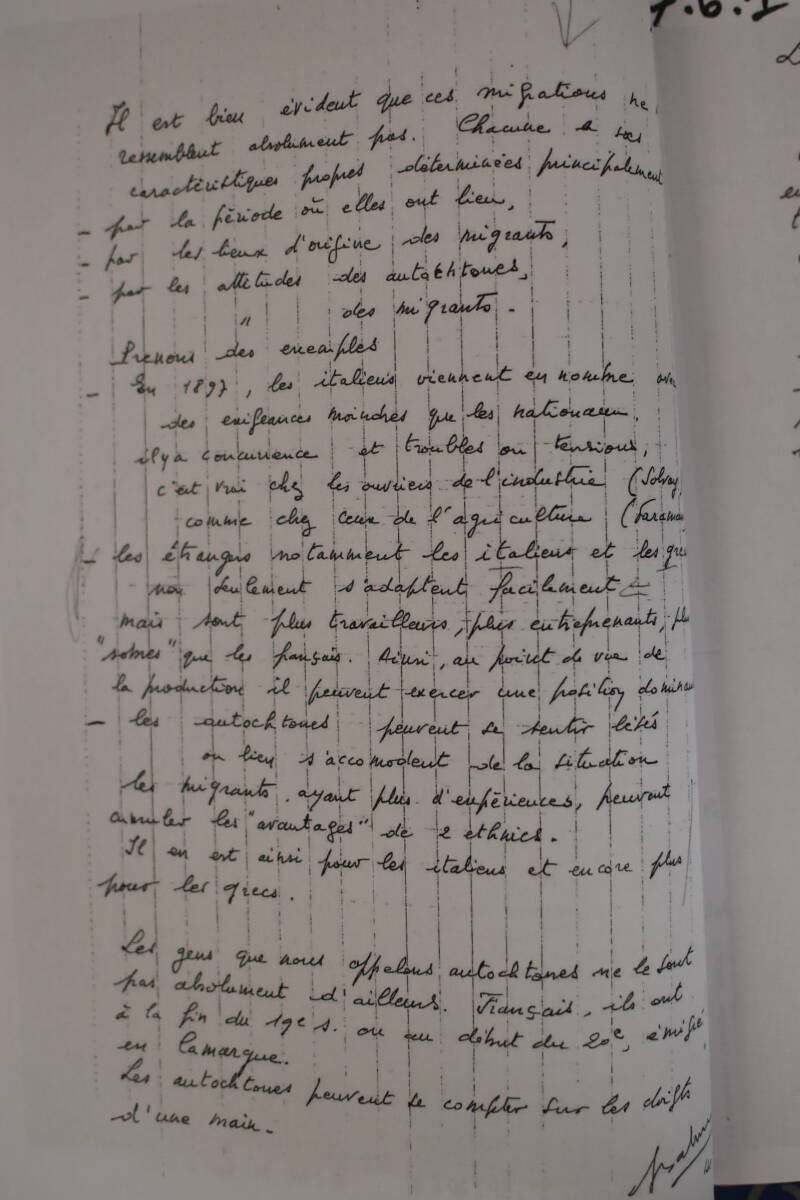 7.6.I
Il est bien évident que ces migrations ne
ressemblent absolument pas. Chacune a ses
caractéristiques propres déterminées principalement
- par la période où elles ont lieu,
- par les lieux d'origine des migrants,
- par les attitudes des autochtones,
" des migrants.
Prenons des exemples
- En 1897, les italiens viennent en nombre
des exigeances moindres que les nationaux.
il y a concurrence et troubles ou tensions,
c'est vrai chez les ouvriers de l'industrie (Solvay
comme chez ceux de l'agriculture (Faraman
- les étrangers notamment les italiens et les grecs
non seulement s'adaptent facilement
mais sont plus travailleurs, plus entreprenants, plus
"sobres" que les français. Ainsi, au point de vue de
la production il peuvent exercer une position dominan
- les autochtones peuvent se sentir lésés
ou bien s'accomodent de la situation
les migrants. ayant plus d'expériences, peuvent
cumuler les "avantages" de 2 ethnies.
Il en est ainsi pour les italiens et encore plus
pour les grecs.
Les gens que nous appelons autochtones ne le sont
pas absolument d'ailleurs. Français, ils ont
à la fin du 19e s. ou au début du 20e, émigré
en Camargue.
Les autochtones peuvent se compter sur les doigts
d'une main.